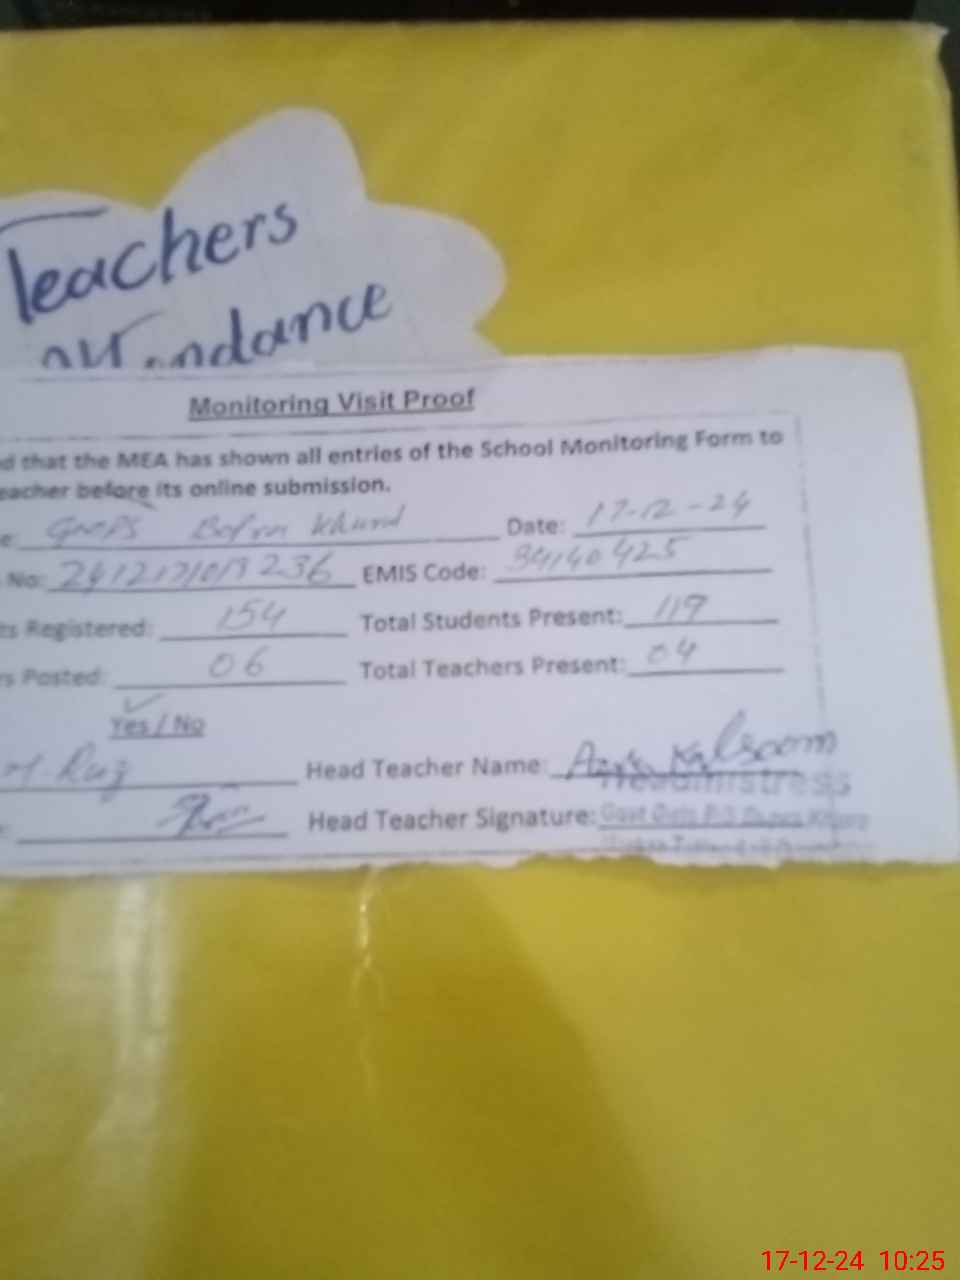 Teachers
attendance
Monitoring Visit Proof
d that the MEA has shown all entries of the School Monitoring Form to
eacher before its online submission.
e: GGPS Khurd Date: 17-12-24
No: EMIS Code: 34140425
ts Registered: 154 Total Students Present: 119
rs Posted: 06 Total Teachers Present: 04
Yes / No
Head Teacher Name: Kalsoom
Headmistress
Head Teacher Signature: Govt Girls P/S Khurd
17-12-24 10:25